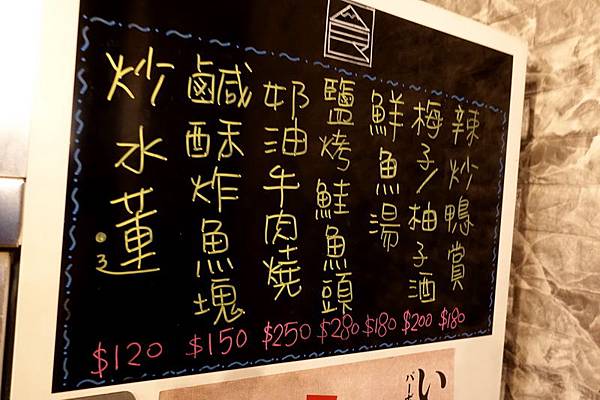 食
辣炒鴨賞
$180
梅子/柚子酒
$200
鮮魚湯
$180
鹽烤鮭魚頭
$280
奶油牛肉燒
$250
鹹酥炸魚塊
$150
炒水蓮
$120
い
バーボ